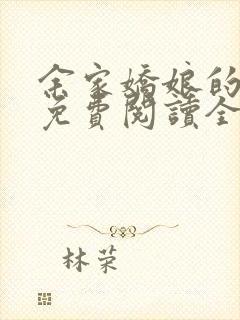 余家嬌娘的
免費閱讀全
林荣